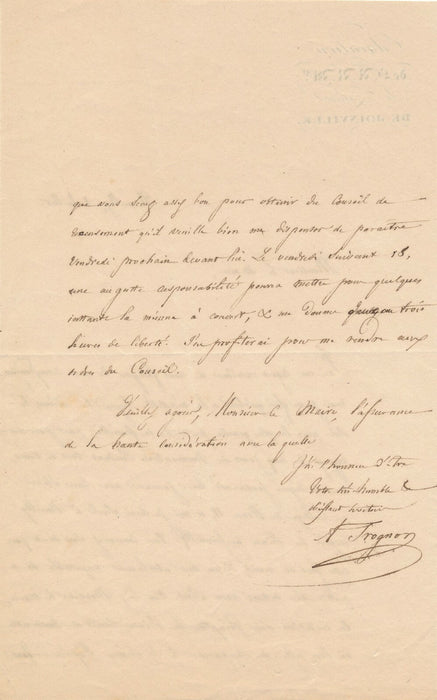 que vous serez assez bon pour obtenir du Conseil de
recensement qu'il veuille bien me dispenser de paraître
vendredi prochain devant lui. Le vendredi suivant 18,
une auguste responsabilité pourra mettre pour quelques
instants la mienne à couvert, & me donner deux ou trois
heures de liberté. J'en profiterai pour me rendre aux
ordres du Conseil.
Veuillez agréer, Monsieur le Maire, l'assurance
de la haute considération avec laquelle
J'ai l'honneur d'être
Votre très humble &
obéissant serviteur
A Trognon
DE JOINVILLE.